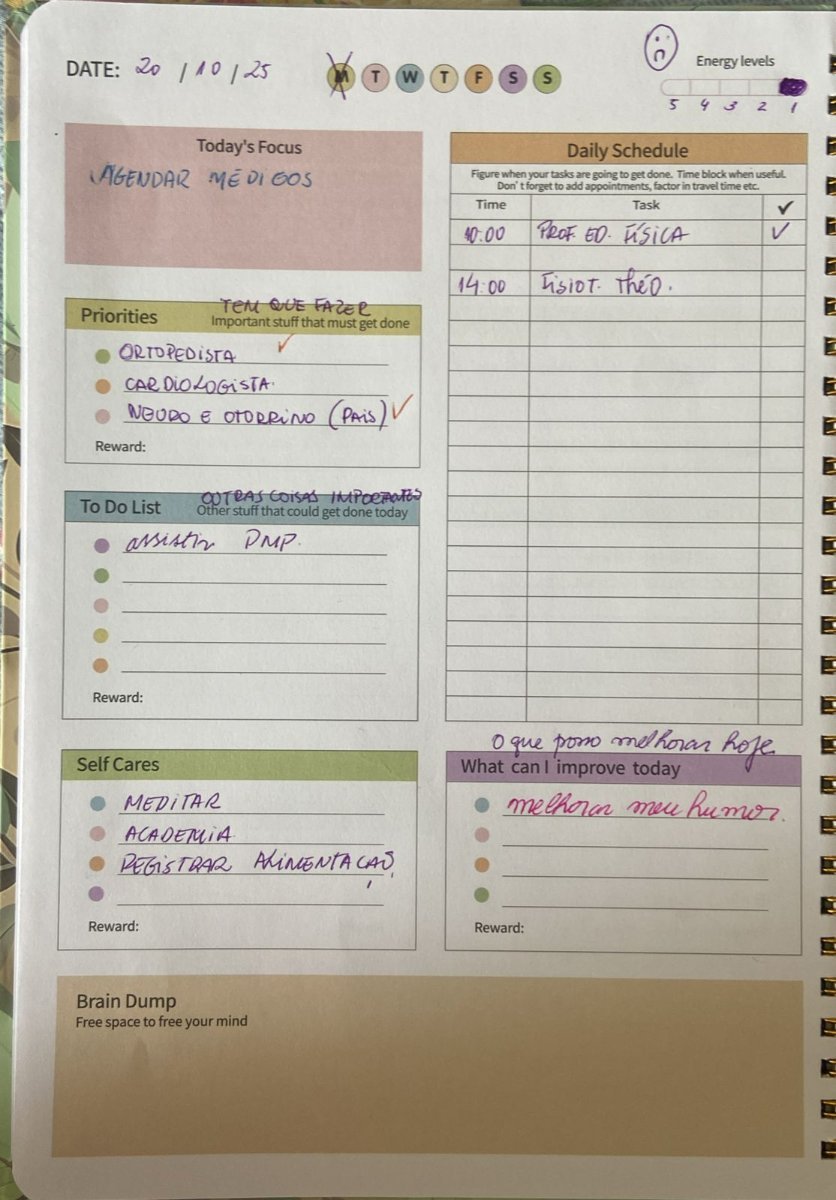 DATE: 20 / 10 / 25
M T W T F S S
Energy levels
5 4 3 2 1
Today's Focus
AGENDAR MÉDICOS
TEM QUE FAZER
Priorities
Important stuff that must get done
ORTOPEDISTA ✓
CARDIOLOGISTA.
NEURO E OTORRINO (PAIS) ✓
Reward:
OUTRAS COISAS IMPORTANTES
To Do List
Other stuff that could get done today
assistir DMP.
Reward:
Self Cares
MEDITAR
ACADEMIA
REGISTRAR ALIMENTAÇAÕ,
Reward:
Daily Schedule
Figure when your tasks are going to get done. Time block when useful.
Don't forget to add appointments, factor in travel time etc.
Time Task ✓
10:00 PROF. ED. FÍSICA ✓
14:00 FISIOT. Théo.
O que posso melhorar hoje
What can I improve today
melhorar meu humor.
Reward:
Brain Dump
Free space to free your mind